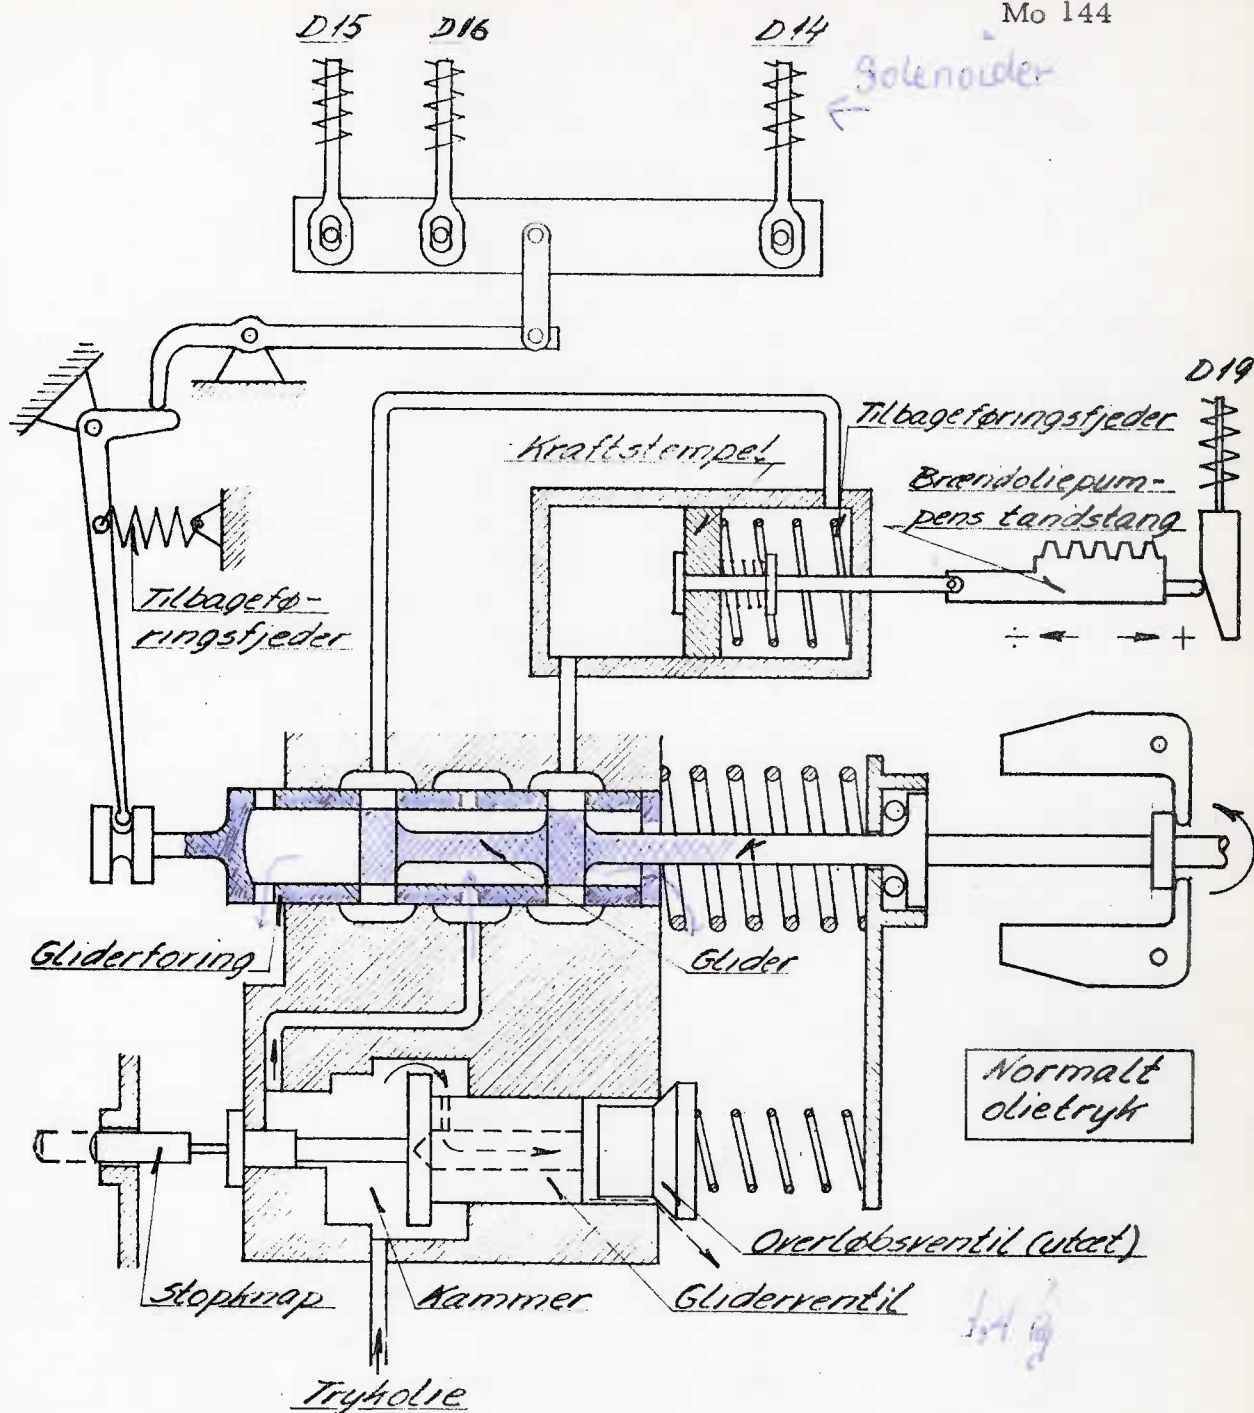 Mo 144
D15
D16
D14
Solenoider
D19
Tilbageføringsfjeder
Kraftstempel
Brændoliepum-
pens tandstang
Tilbagefø-
ringsfjeder
÷
+
K
Gliderforing
Glider
Normalt
olietryk
Overløbsventil (utæt)
Stopknap
Kammer
Gliderventil
Trykolie